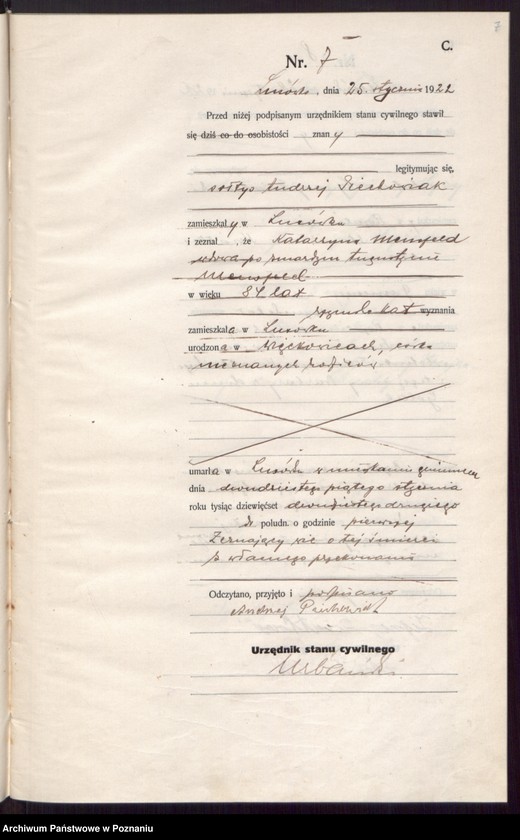 7
C.
Nr. 7
Lusówko, dnia 25. stycznia 1922
Przed niżej podpisanym urzędnikiem stanu cywilnego stawił
się dziś co do osobistości znany
legitymując się,
sołtys Andrzej Piechowiak
zamieszkały w Lusówku
i zeznał, że Katarzyna Mensfeld
wdowa po zmarłym Augustynie
Mensfeld
w wieku 84 lat
rzymsko kat wyznania
zamieszkała w Lusówku
urodzona w Więckowicach, córka
nieznanych rodziców
umarła w Lusówku w mieszkaniu gminnem
dnia dwudziestego piątego stycznia
roku tysiąc dziewięćset dwudziestego drugiego
poludn. o godzinie pierwszej
Zeznający wie o tej śmierci
z własnego przekonania
Odczytano, przyjęto i podpisano
Andrzej Piechowiak
Urzędnik stanu cywilnego
Urbański
Archiwum Państwowe w Poznaniu